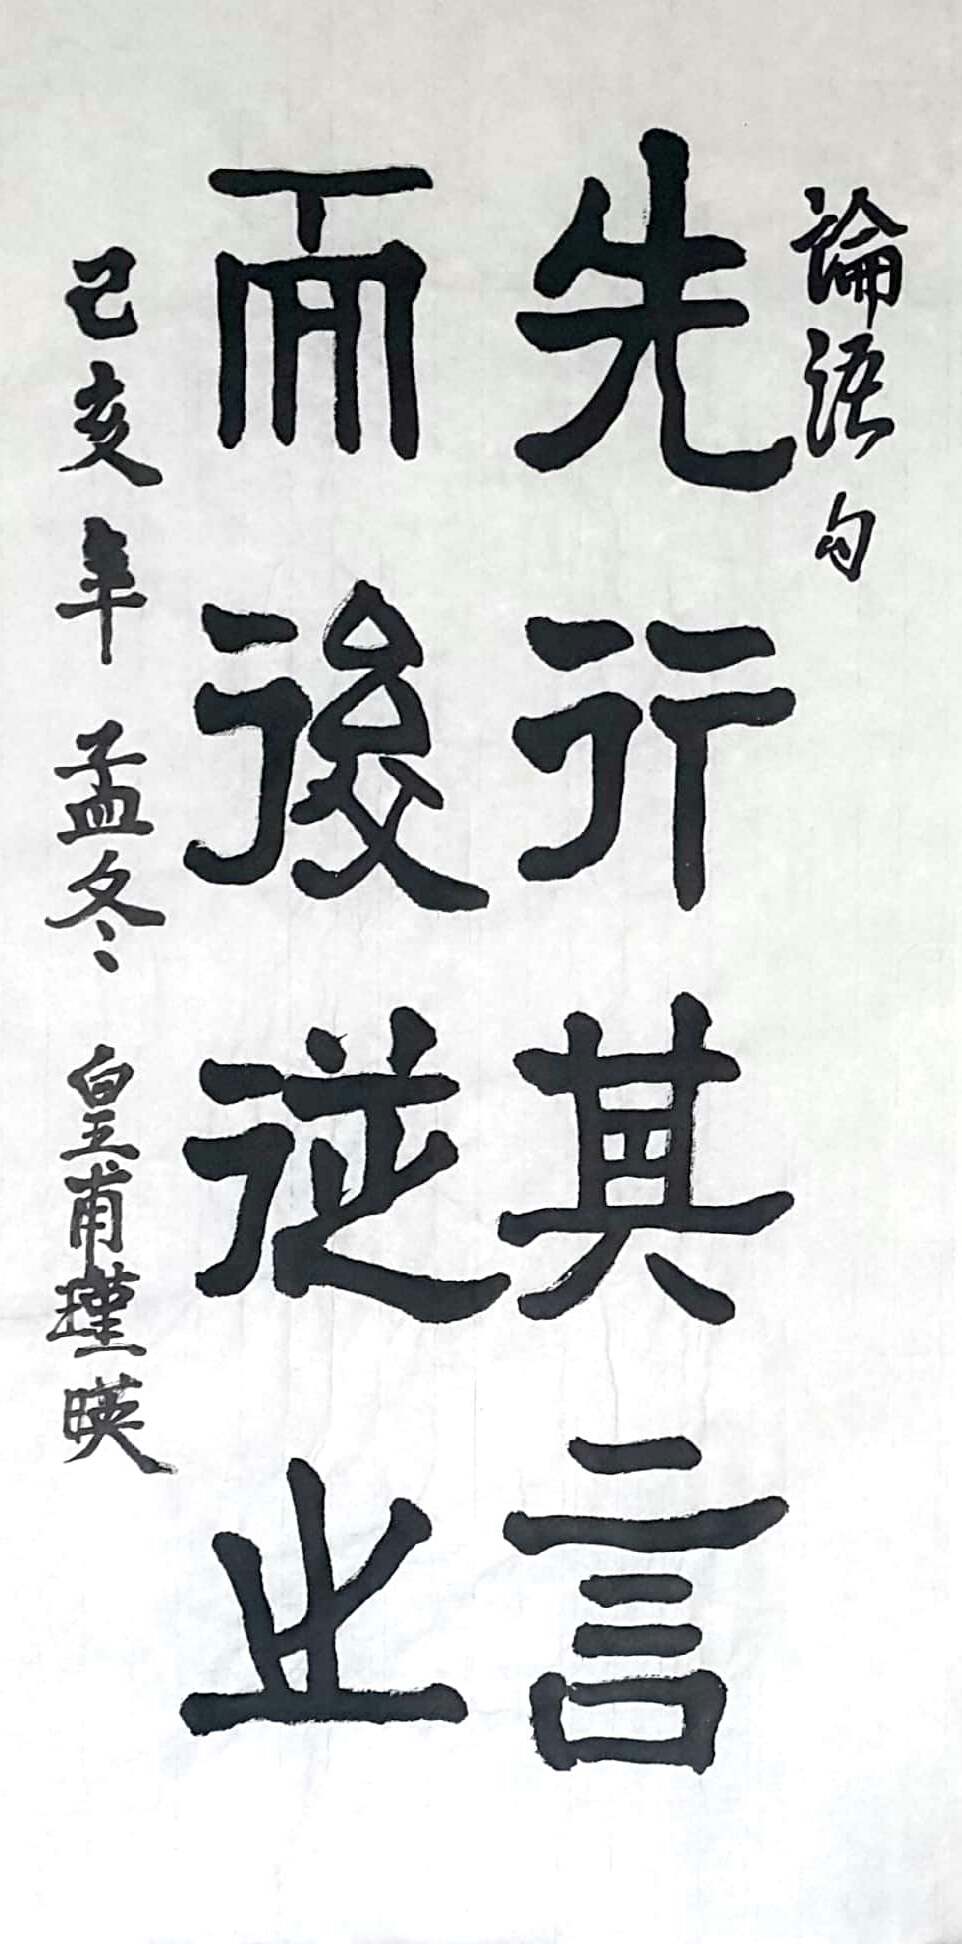 論語句
先行其言
而後從之
己亥年 孟冬 皇甫瑾暎